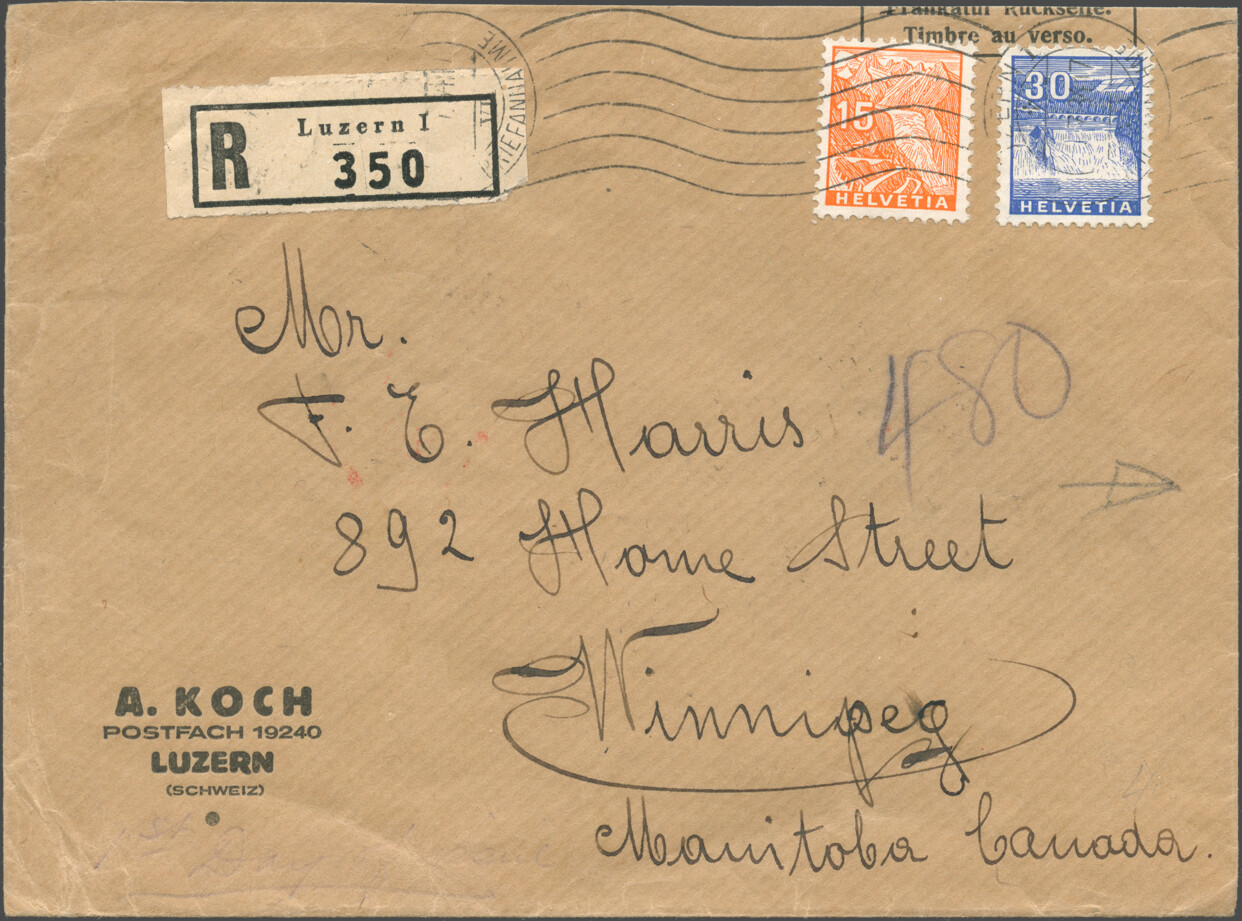 Frankatur Rückseite.
Timbre au verso.
R
Luzern 1
350
15
HELVETIA
30
HELVETIA
Mr.
F. E. Harris
480
892 Home Street
Winnipeg
Manitoba Canada.
A. KOCH
POSTFACH 19240
LUZERN
(SCHWEIZ)
1st Day